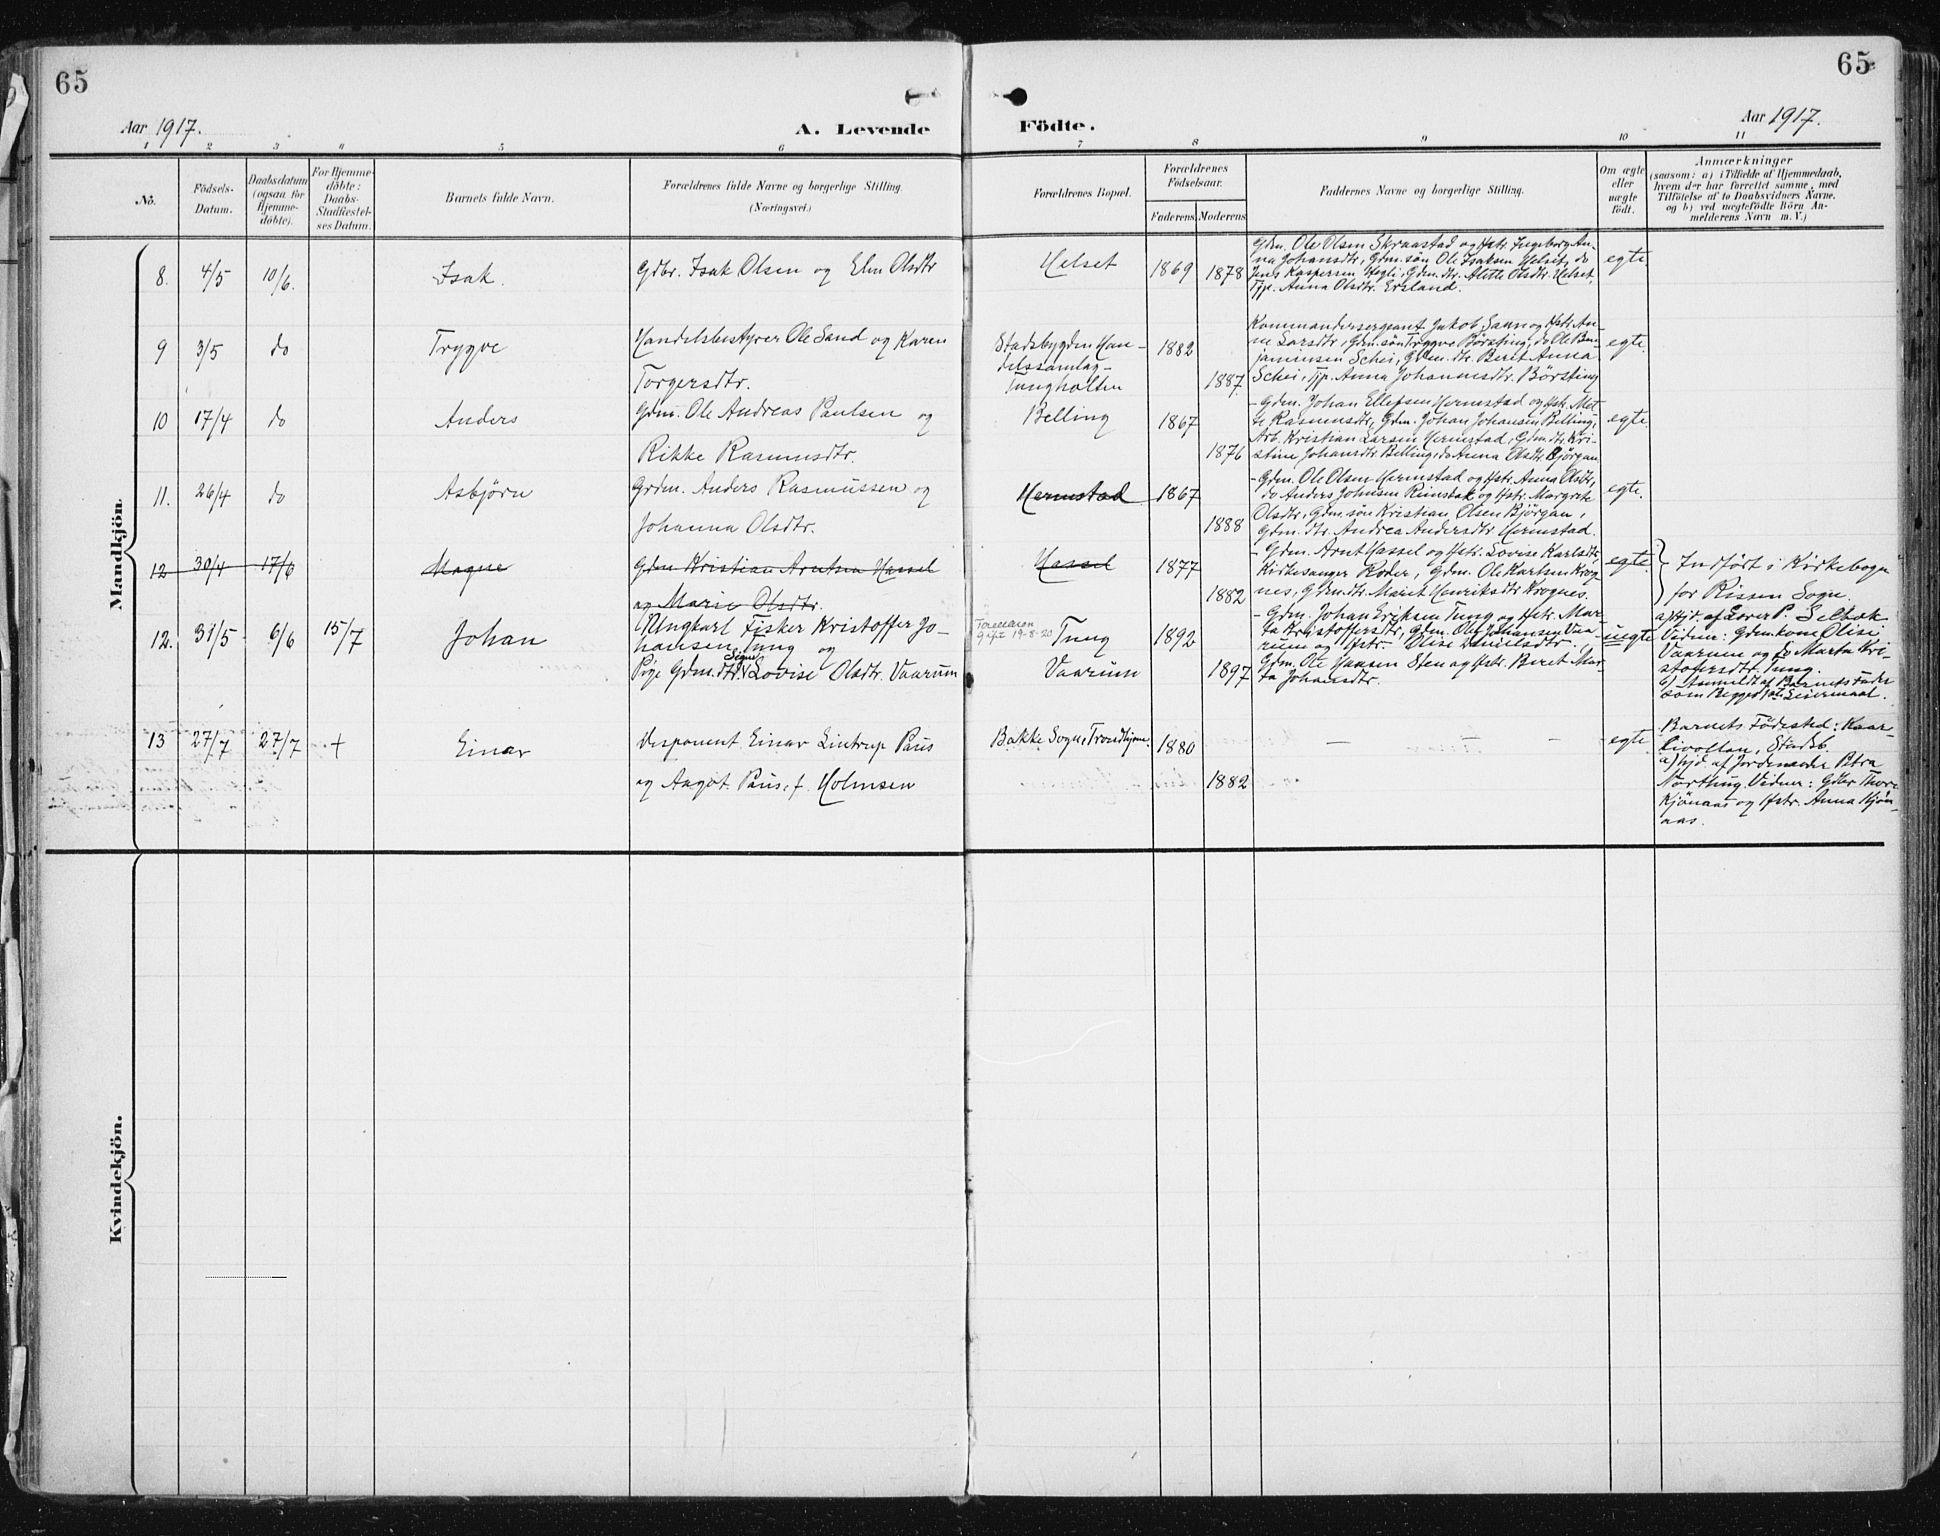 65
65
Aar 1917.
A. Levende
Födte.
Aar 1917.
1 2 3 4 5 6 7 8 9 10 11
No.
Födsels-
Datum.
Daabsdatum
(ogsaa for
Hjemme-
döbte).
For Hjemme-
döbte:
Daabs-
Stadfæstel-
ses Datum.
Barnets fulde Navn.
Forældrenes fulde Navne og borgerlige Stilling.
(Næringsvei.)
Forældrenes Bopæl.
Forældrenes
Födselsaar.
Faderens. Moderens.
Faddernes Navne og borgerlige Stilling.
Om ægte
eller
uægte
födt.
Anmærkninger
(saasom: a) i Tilfælde af Hjemmedaab,
hvem der har forrettet samme, med
Tilföielse af to Daabsvidners Navne,
og b) ved uægtefödte Börn An-
melderens Navn m. V.)
Mandkjön.
8. 4/5 10/6. Isak. Gdbr. Isak Olsen og Elen Olsdtr Helset 1869 1878 egte.
Gdm. Ole Olsen Skraastad og Hstr. Ingeborg An-
na Johansdtr, Gdm.søn Ole Isaksen Helset, do
Jens Kaspersen Hegli, Gdm.dtr. Alette Olsdtr. Helset,
Tjp. Anna Olsdtr. Ersland.
9 3/5 do Trygve Handelsbestyrer Ole Sand og Karen
Torgersdtr.
Stadsbygden Han-
delssamlag-
Tungholten
1882 1887. egte.
Kommandersergeant Jakob Saan og Hstr. An-
ne Larsdtr, Gdm.søn Tryggve Børsting, do Ole Ben-
jaminsen Schei, Gdm. dtr. Berit Anna
Schei, Tjp. Anna Johannesdtr. Børsting
10 17/4 do Anders Gdm. Ole Andreas Paulsen og
Rikke Rasmusdtr.
Belling 1867 1876 egte.
- Gdm. Johan Ellefsen Hermstad og Hstr. Met-
te Rasmusdtr, Gdm. Johan Johansen Belling,
Arb. Kristian Larsen Hermstad, Gdm.dtr. Kri-
stine Johansdtr Belling, do Anna Olsdtr. Bjørgan.
11. 26/4 do Asbjørn Grdm. Anders Rasmussen og
Johanna Olsdtr.
Hermstad 1867 1888 egte.
- Gdm. Ole Olsen Hermstad og Hstr. Anna Olsdtr,
do Anders Johnsen Reinstak og Hstr. Margrete
Olsdtr, Gdm.søn Kristian Olsen Bjørgan,
Gdm. dtr. Andrea Andersdtr. Hermstad.
12 30/4 17/6 Magne Gdm. Kristian Arntsen Hassel
og Marie Olsdtr.
Hassel 1877 1882 egte.
- Gdm. Arnt Hassel og Hstr. Lovise Karlsdtr,
Kirkesanger Røder, Gdm. Ole Karlsen Krog-
nes, Gdm.dtr. Marit Henriksdtr Krognes.
Indført i Kirkebogen
for Rissen Sogn.
12. 31/5 6/6 15/7 Johan Ungkarl Fisker Kristoffer Jo-
hansen Tung og
Pige Gdm.dtr. Signe Lovise Olsdtr. Vaarum
gift 19-8-20
Tung
Vaarum
1892 1897 uegte
- Gdm. Johan Eriksen Tung og Hstr. Mar-
ta Kristoffersdtr, Gdm. Ole Johansen Vaa-
rum og Hstr. Olise Danielsdtr.
Gdm. Ole Hansen Sten og Hstr. Beret Mar-
ta Johansdtr.
a) Hjd. af Lærer P. Selbæk
Vidner: Gdm.kone Olise
Vaarum og do Marta Kri-
stofersdtr. Tung.
b) Anmeldt af Barnets Fader
som Begges 1ste Leiermaal.
13 27/7 27/7 + Einar Disponent Einar Lintrup Paus
og Aagot Paus, f. Holmsen
Bakke Sogn, Trondhjem. 1880 1882 — — egte.
Barnets Fødested: Kaar-
livollen, Stadsb.
a) hjd. af Jordemoder Petra
Northug. Vidner: Gdbr Thore
Kjønaas og Hstr. Anna Kjøn-
aas.
Kvindekjön.